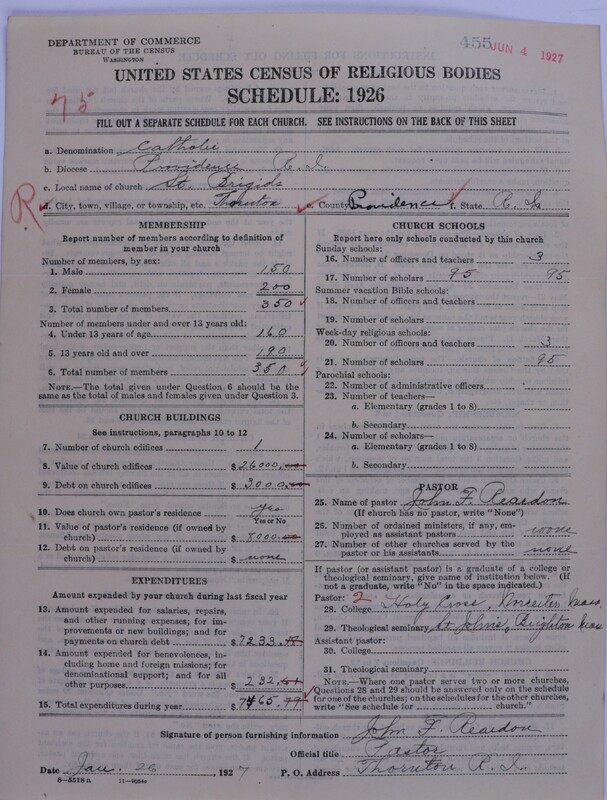 DEPARTMENT OF COMMERCE
BUREAU OF THE CENSUS
WASHINGTON
455 JUN 4 1927
UNITED STATES CENSUS OF RELIGIOUS BODIES
SCHEDULE: 1926
75
FILL OUT A SEPARATE SCHEDULE FOR EACH CHURCH. SEE INSTRUCTIONS ON THE BACK OF THIS SHEET
a. Denomination Catholic
b. Diocese Providence R. I.
c. Local name of church St. Brigids
R
d. City, town, village, or township, etc. Thornton e. County Providence f. State R. I.
MEMBERSHIP
Report number of members according to definition of member in your church
Number of members, by sex:
1. Male 150
2. Female 200
3. Total number of members 350
Number of members under and over 13 years old:
4. Under 13 years of age 160
5. 13 years old and over 190
6. Total number of members 350
NOTE.—The total given under Question 6 should be the same as the total of males and females given under Question 3.
CHURCH BUILDINGS
See instructions, paragraphs 10 to 12
7. Number of church edifices 1
8. Value of church edifices $26000.00
9. Debt on church edifices $3000.00
10. Does church own pastor's residence yes
Yes or No
11. Value of pastor's residence (if owned by church) $8000.00
12. Debt on pastor's residence (if owned by church) $ none
EXPENDITURES
Amount expended by your church during last fiscal year
13. Amount expended for salaries, repairs, and other running expenses; for improvements or new buildings; and for payments on church debt $7233.
14. Amount expended for benevolences, including home and foreign missions; for denominational support; and for all other purposes 232.
15. Total expenditures during year $7465.
CHURCH SCHOOLS
Report here only schools conducted by this church
Sunday schools:
16. Number of officers and teachers 3
17. Number of scholars 95 95
Summer vacation Bible schools:
18. Number of officers and teachers
19. Number of scholars
Week-day religious schools:
20. Number of officers and teachers 3
21. Number of scholars 95
Parochial schools:
22. Number of administrative officers
23. Number of teachers—
a. Elementary (grades 1 to 8)
b. Secondary
24. Number of scholars—
a. Elementary (grades 1 to 8)
b. Secondary
PASTOR
25. Name of pastor John F. Reardon
(If church has no pastor, write "None")
26. Number of ordained ministers, if any, employed as assistant pastors none
27. Number of other churches served by the pastor or his assistants none
If pastor (or assistant pastor) is a graduate of a college or theological seminary, give name of institution below. (If not a graduate, write "No" in the space indicated.)
Pastor: 2
28. College Holy Cross, Worcester Mass.
29. Theological seminary St John's, Brighton Mass
Assistant pastor:
30. College
31. Theological seminary
NOTE.—Where one pastor serves two or more churches, Questions 28 and 29 should be answered only on the schedule for one of the churches; on the schedules for the other churches, write "See schedule for church."
Signature of person furnishing information John F. Reardon
Official title Pastor
Date Jan. 26, 1927 P. O. Address Thornton R. I.
8-5518 a 11-9034a